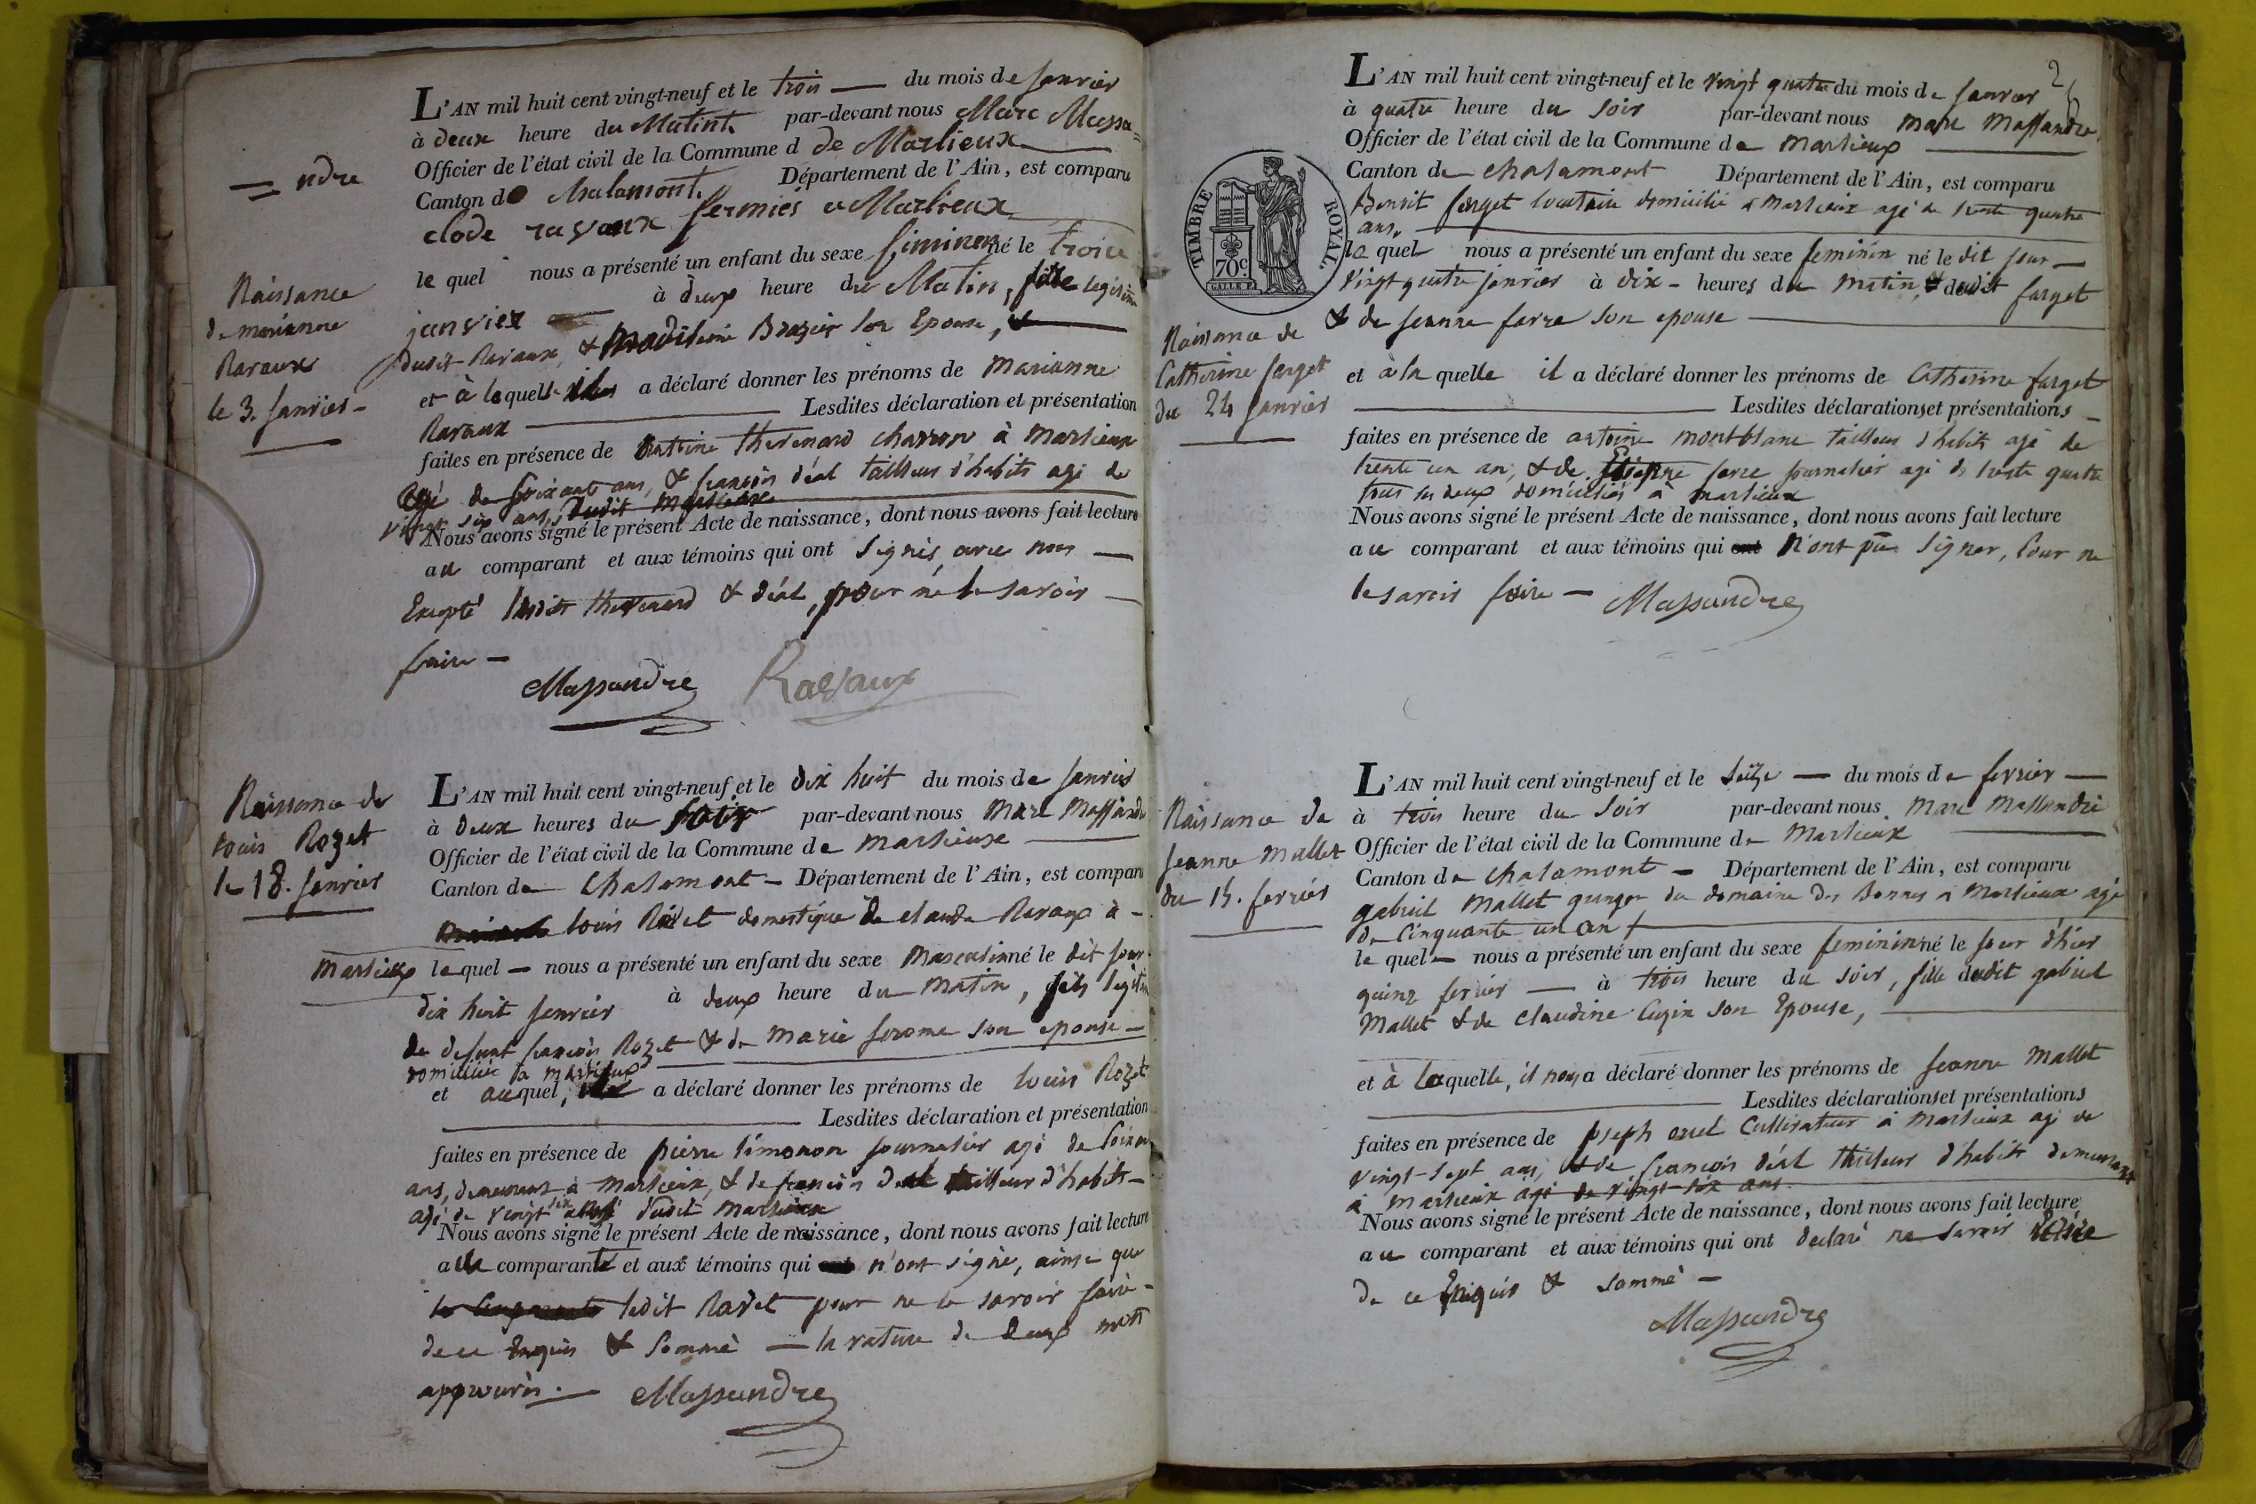 L'AN mil huit cent vingt-neuf et le trois — du mois de janvier
à deux heure du Matint par-devant nous Marc Massa=
= ndre
Officier de l'état civil de la Commune d de Marlieux
Canton de Chalamont. Département de l'Ain, est comparu
Clode ravaux fermier a Marlieux
Naissance
de marianne
Ravaux
le 3. janvier -
le quel nous a présenté un enfant du sexe né le troie
janvier à deux heure du Matin, fille legitime
dudit Ravaux & son Epouse,
et à lequelle a déclaré donner les prénoms de Marianne
Ravaux — Lesdites déclaration et présentation
faites en présence de antoine thevenard charron à Marlieux
agé de soixant ans, & françois déal tailleur d'habits agé de
vingt six ans, dudit Marlieux
Nous avons signé le présent Acte de naissance, dont nous avons fait lecture
au comparant et aux témoins qui ont signés, avec nous —
Excepté thevenard & déal, pour ne le savoir —
faire —
Massandre Ravaux
Naissance de
Louis Rozet
le 18. janvier
L'AN mil huit cent vingt-neuf et le dix huit du mois de janvier
à deux heures du soir par-devant nous Marc Massandre
Officier de l'état civil de la Commune de Marlieux
Canton de Chalamont — Département de l'Ain, est comparu
louis domestique de claude Ravaux à -
Marlieux le quel — nous a présenté un enfant du sexe Masculin né le dit jour
dix huit janvier à deux heure du Matin, fils legitim
de defunt françois Rozet & de Marie son epouse —
domiciliée à Marlieux
et auquel, a déclaré donner les prénoms de louis Rozet
Lesdites déclaration et présentation
faites en présence de pierre limonon journalier agé de soixan
ans, demeurant à Marlieux, & de françois déal tailleur d'habits -
agé de vingt six dudit Marlieux
Nous avons signé le présent Acte de naissance, dont nous avons fait lecture
comparante et aux témoins qui n'ont signé, ainsi que
ledit pour ne le savoir faire -
de ce Enquis & Sommé — la rature de deux mots
approuvés. — Massandre
2
L'AN mil huit cent vingt-neuf et le vingt quatre du mois de janvier
à quatre heure du soir par-devant nous Marc Massandre
Officier de l'état civil de la Commune de Marlieux
Canton de Chalamont Département de l'Ain, est comparu
TIMBRE ROYAL.
70c
Benoit farget locataire domicilié à Marlieux agé de trente quatre
ans,
le quel nous a présenté un enfant du sexe feminin né le dit jour —
vingt quatre janvier à dix - heures du matin, & dudit farget
& de jeanne farre son epouse —
Naissance de
Catherine farget
du 24 janvier
et à la quelle il a déclaré donner les prénoms de Catherine farget
Lesdites déclarations et présentations
faites en présence de antoine montblanc tailleur d'habits agé de
trente un an, & de farre journalier agé de trente quatre
tous les deux domiciliés à Marlieux
Nous avons signé le présent Acte de naissance, dont nous avons fait lecture
au comparant et aux témoins qui n'ont pu signer, pour ne
le savoir faire — Massandre
Naissance de
jeanne Mallet
du 15. fevrier
L'AN mil huit cent vingt-neuf et le seize — du mois de fevrier —
à trois heure du soir par-devant nous Marc Massandre
Officier de l'état civil de la Commune de Marlieux
Canton de Chalamont — Département de l'Ain, est comparu
gabriel Mallet granger du domaine des à Marlieux agé
de Cinquante un an
le quel — nous a présenté un enfant du sexe feminin né le jour d'hier
quinz fevrier — à trois heure du soir, fille dudit gabriel
Mallet & de Claudine son Epouse,
et à laquelle, il nous a déclaré donner les prénoms de jeanne Mallet
Lesdites déclarations et présentations
faites en présence de joseph Cultivateur à Marlieux agé de
vingt-sept ans, & de françois déal tailleur d'habits demeurant
à Marlieux agé de vingt-six ans
Nous avons signé le présent Acte de naissance, dont nous avons fait lecture
au comparant et aux témoins qui ont declaré ne savoir
de ce Enquis & sommé —
Massandre